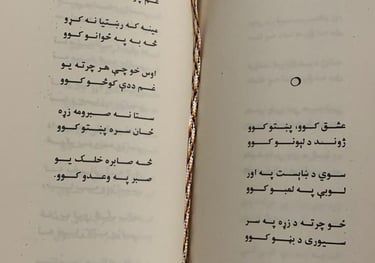 غم پ
مینه که رښتیا نه کړو
څه به په ځوانو کوو
اوس خو چې هر چرته یو
غم ددې کوڅو کوو
ستا نه صبرومه زړه
ځان سره پښتو کوو
څه صابره خلک یو
صبر په وعدو کوو.
عشق کوو، پښتو کوو
ژوند د لېونو کوو
سوي د ښایست په اور
لوبې په لمبو کوو
خو چرته د زړه په سر
سیوری د بڼو کوو